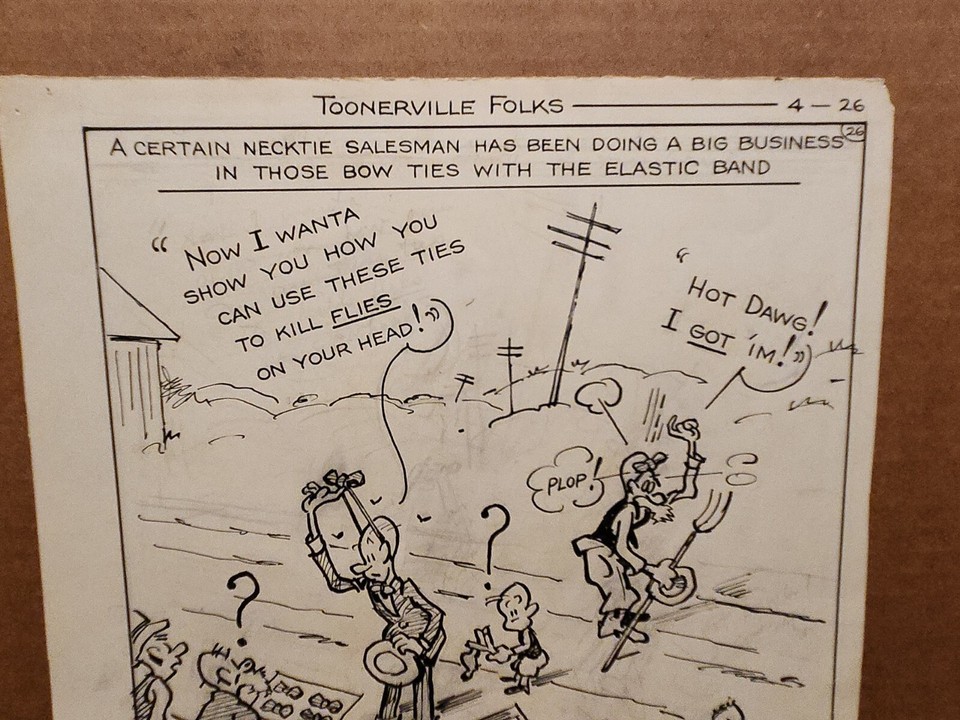 TOONERVILLE FOLKS 4-26
26
A CERTAIN NECKTIE SALESMAN HAS BEEN DOING A BIG BUSINESS
IN THOSE BOW TIES WITH THE ELASTIC BAND
"NOW I WANTA
SHOW YOU HOW YOU
CAN USE THESE TIES
TO KILL FLIES
ON YOUR HEAD!"
"HOT DAWG!
I GOT 'IM!"
PLOP!
?
?